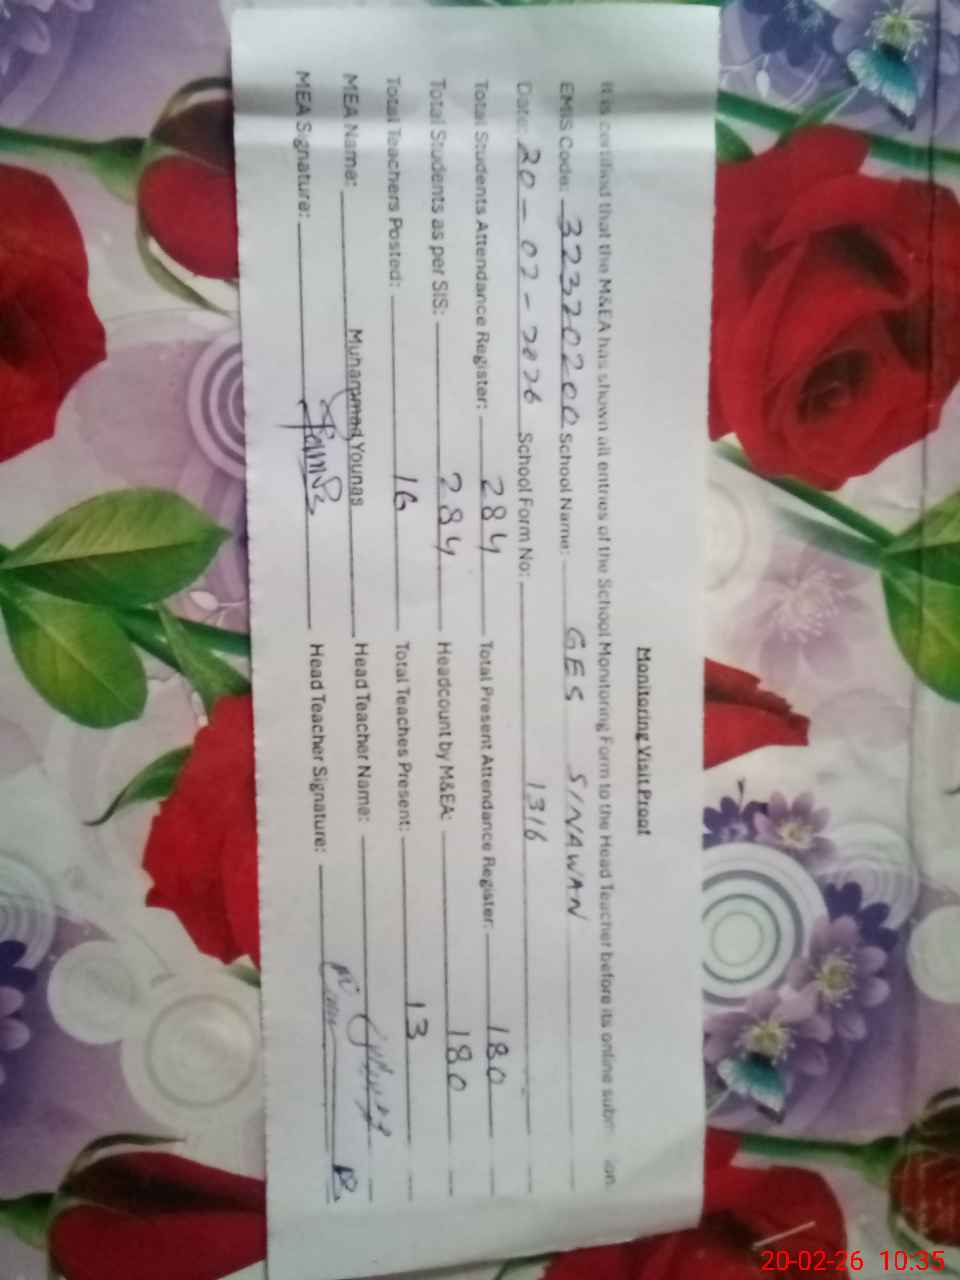 Monitoring Visit Proof
It is certified that the M&EA has shown all entries of the School Monitoring Form to the Head Teacher before its online
EMIS Code: 32320200 School Name: GES SINAWAN
Date: 20-02-2026 School Form No: 1316
Total Students Attendance Register: 284 Total Present Attendance Register: 180
Total Students as per SIS: 284 Headcount by M&EA: 180
Total Teachers Posted: 16 Total Teaches Present: 13
MEA Name: Muhammad Younas Head Teacher Name:
MEA Signature: Head Teacher Signature:
20-02-26 10:35